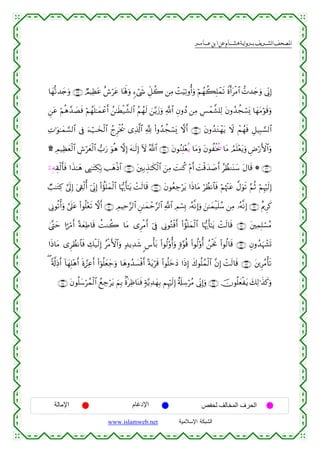 المصحف الشريف برواية هشام عن ابن عامر
إِنِّي وَجَدتُّ ٱمْرَأَةً تَمْلِكُهُمْ وَأُوتِيَتْ مِن كُلِّ شَيْءٍ وَلَهَا عَرْشٌ عَظِيمٌ ۝ وَجَدتُّهَا
وَقَوْمَهَا يَسْجُدُونَ لِلشَّمْسِ مِن دُونِ ٱللَّهِ وَزَيَّنَ لَهُمُ ٱلشَّيْطَٰنُ أَعْمَٰلَهُمْ فَصَدَّهُمْ عَنِ
ٱلسَّبِيلِ فَهُمْ لَا يَهْتَدُونَ ۝ أَلَّا يَسْجُدُوا۟ لِلَّهِ ٱلَّذِي يُخْرِجُ ٱلْخَبْءَ فِي ٱلسَّمَٰوَٰتِ
وَٱلْأَرْضِ وَيَعْلَمُ مَا تُخْفُونَ وَمَا تُعْلِنُونَ ۝ ٱللَّهُ لَا إِلَٰهَ إِلَّا هُوَ رَبُّ ٱلْعَرْشِ ٱلْعَظِيمِ ۩
۝ ۞ قَالَ سَنَنظُرُ أَصَدَقْتَ أَمْ كُنتَ مِنَ ٱلْكَٰذِبِينَ ۝ ٱذْهَب بِّكِتَٰبِي هَٰذَا فَأَلْقِهِ
إِلَيْهِمْ ثُمَّ تَوَلَّ عَنْهُمْ فَٱنظُرْ مَاذَا يَرْجِعُونَ ۝ قَالَتْ يَٰٓأَيُّهَا ٱلْمَلَؤُا۟ إِنِّي أُلْقِيَ إِلَيَّ كِتَٰبٌ
كَرِيمٌ ۝ إِنَّهُۥ مِن سُلَيْمَٰنَ وَإِنَّهُۥ بِسْمِ ٱللَّهِ ٱلرَّحْمَٰنِ ٱلرَّحِيمِ ۝ أَلَّا تَعْلُوا۟ عَلَيَّ وَأْتُونِي
مُسْلِمِينَ ۝ قَالَتْ يَٰٓأَيُّهَا ٱلْمَلَؤُا۟ أَفْتُونِي فِي أَمْرِي مَا كُنتُ قَاطِعَةً أَمْرًا حَتَّىٰ
تَشْهَدُونِ ۝ قَالُوا۟ نَحْنُ أُو۟لُوا۟ قُوَّةٍ وَأُو۟لُوا۟ بَأْسٍ شَدِيدٍ وَٱلْأَمْرُ إِلَيْكِ فَٱنظُرِي مَاذَا
تَأْمُرِينَ ۝ قَالَتْ إِنَّ ٱلْمُلُوكَ إِذَا دَخَلُوا۟ قَرْيَةً أَفْسَدُوهَا وَجَعَلُوٓا۟ أَعِزَّةَ أَهْلِهَآ أَذِلَّةً ۖ
وَكَذَٰلِكَ يَفْعَلُونَ ۝ وَإِنِّي مُرْسِلَةٌ إِلَيْهِم بِهَدِيَّةٍ فَنَاظِرَةٌ بِمَ يَرْجِعُ ٱلْمُرْسَلُونَ ۝
الحرف المخالف لحفص الإدغام الإمالة
الشبكة الإسلامية www.islamweb.net